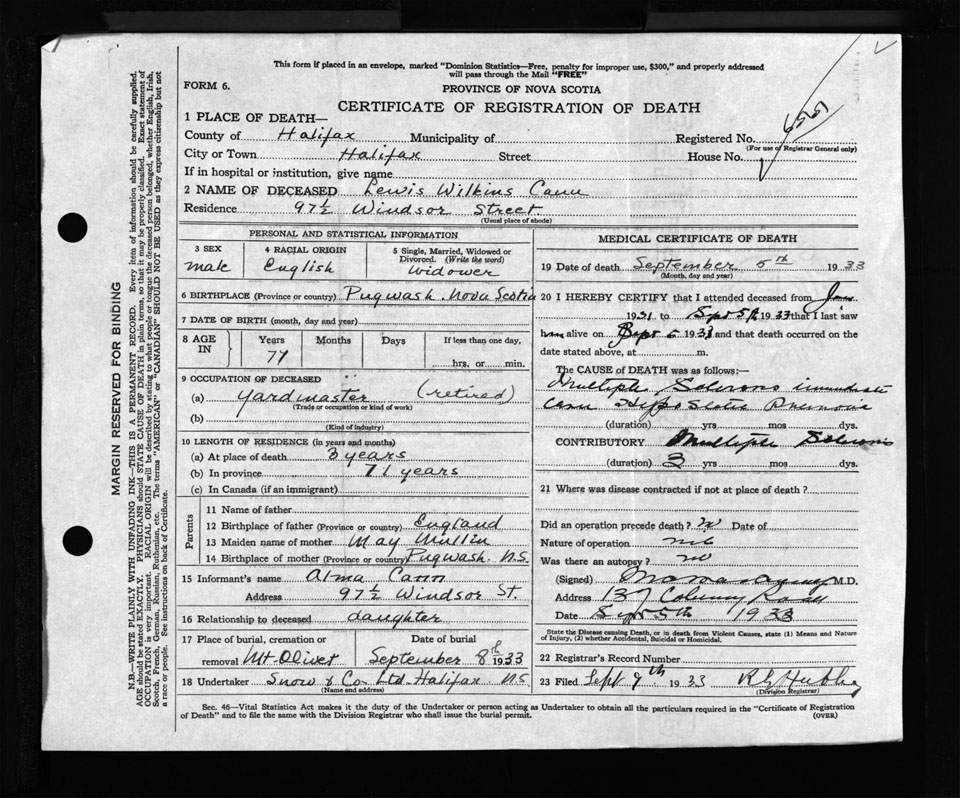 This form if placed in an envelope, marked "Dominion Statistics—Free, penalty for improper use, $300," and properly addressed
will pass through the Mail "FREE"
FORM 6.
PROVINCE OF NOVA SCOTIA
CERTIFICATE OF REGISTRATION OF DEATH
1 PLACE OF DEATH—
County of Halifax Municipality of Registered No.
(For use of Registrar General only)
City or Town Halifax Street House No.
If in hospital or institution, give name
2 NAME OF DECEASED Lewis Wilkins Cann
Residence 97½ Windsor Street.
(Usual place of abode)
PERSONAL AND STATISTICAL INFORMATION
3 SEX 4 RACIAL ORIGIN 5 Single, Married, Widowed or
Divorced. (Write the word)
male English Widower
6 BIRTHPLACE (Province or country) Pugwash. Nova Scotia
7 DATE OF BIRTH (month, day and year)
8 AGE IN Years Months Days If less than one day,
71 hrs. or min.
9 OCCUPATION OF DECEASED
(a) yardmaster (retired)
(Trade or occupation or kind of work)
(b)
(Kind of industry)
10 LENGTH OF RESIDENCE (in years and months)
(a) At place of death 3 years
(b) In province 71 years
(c) In Canada (if an immigrant)
Parents
11 Name of father
12 Birthplace of father (Province or country) England
13 Maiden name of mother May Mullin
14 Birthplace of mother (Province or country) Pugwash N.S.
15 Informant's name Alma Cann
Address 97½ Windsor St.
16 Relationship to deceased daughter
17 Place of burial, cremation or Date of burial
removal Mt. Olivet September 8th 1933
18 Undertaker Snow & Co. Ltd. Halifax N.S.
(Name and address)
MEDICAL CERTIFICATE OF DEATH
19 Date of death September 5th 1933
(Month, day and year)
20 I HEREBY CERTIFY that I attended deceased from Jan
1931 to Sept 5th 1933 that I last saw
him alive on Sept 5 1933 and that death occurred on the
date stated above, at m.
The CAUSE of DEATH was as follows:—
Multiple Sclerosis immediate
Hypostatic Pneumonia
(duration) yrs mos dys.
CONTRIBUTORY Multiple Sclerosis
(duration) 3 yrs mos dys.
21 Where was disease contracted if not at place of death?
Did an operation precede death? no Date of
Nature of operation
Was there an autopsy? no
(Signed) M.D.
Address 137
Date Sept 5th 1933
State the Disease causing Death, or in death from Violent Causes, state (1) Means and Nature
of Injury, (2) whether Accidental, Suicidal or Homicidal.
22 Registrar's Record Number
23 Filed Sept 9th 1933
(Division Registrar)
Sec. 46—Vital Statistics Act makes it the duty of the Undertaker or person acting as Undertaker to obtain all the particulars required in the "Certificate of Registration
of Death" and to file the same with the Division Registrar who shall issue the burial permit.
(OVER)
MARGIN RESERVED FOR BINDING
N.B.—WRITE PLAINLY WITH UNFADING INK—THIS IS A PERMANENT RECORD. Every item of information should be carefully supplied.
AGE should be stated EXACTLY. PHYSICIANS should STATE CAUSE OF DEATH in plain terms, so that it may be properly classified. Exact statement of
OCCUPATION is very important. RACIAL ORIGIN will be described by stating to what people or tongue the deceased person belonged, whether English, Irish,
Scotch, French, German, Russian, Ruthenian, etc. The terms "AMERICAN" or "CANADIAN" SHOULD NOT BE USED as they express citizenship but not
a race or people. See instructions on back of Certificate.